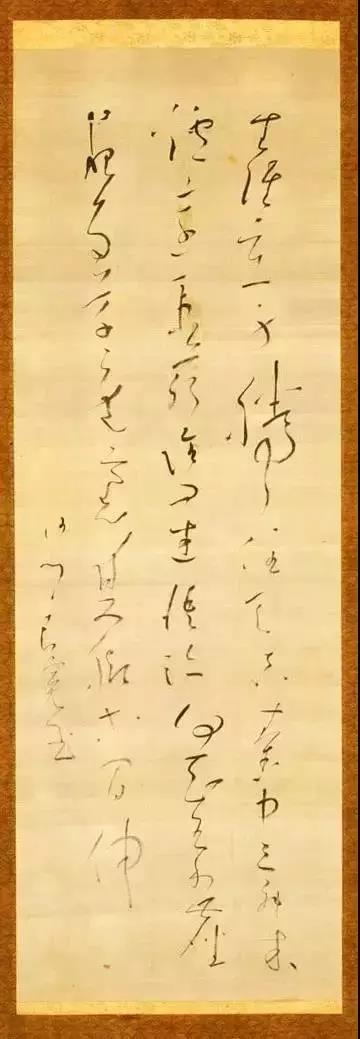 生涯懶立身騰々任天真嚢中三升米
炉辺一束薪誰問迷悟跡何知名利塵
夜雨草庵裡双脚等間伸
沙門良寛書